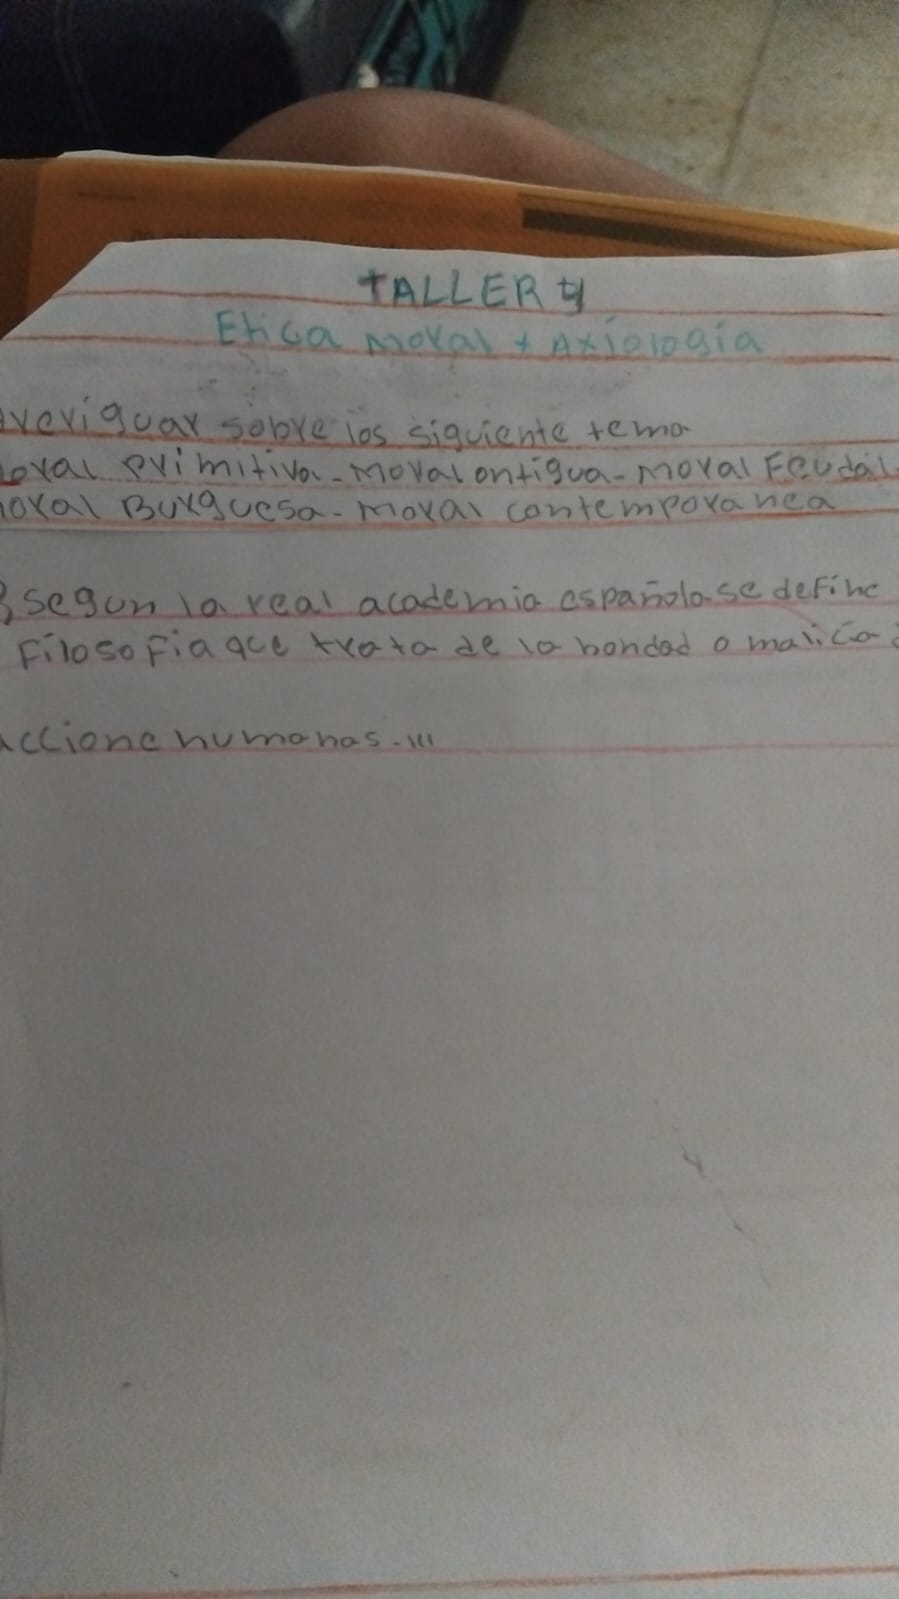 TALLER 4
Etica moral y Axiología
averiguar sobre los siguiente tema
moral primitiva - moral antigua - moral Feudal -
moral Burguesa - moral contemporanea
segun la real academia española se define
Filosofia que trata de la bondad o malicia
accione humanas.